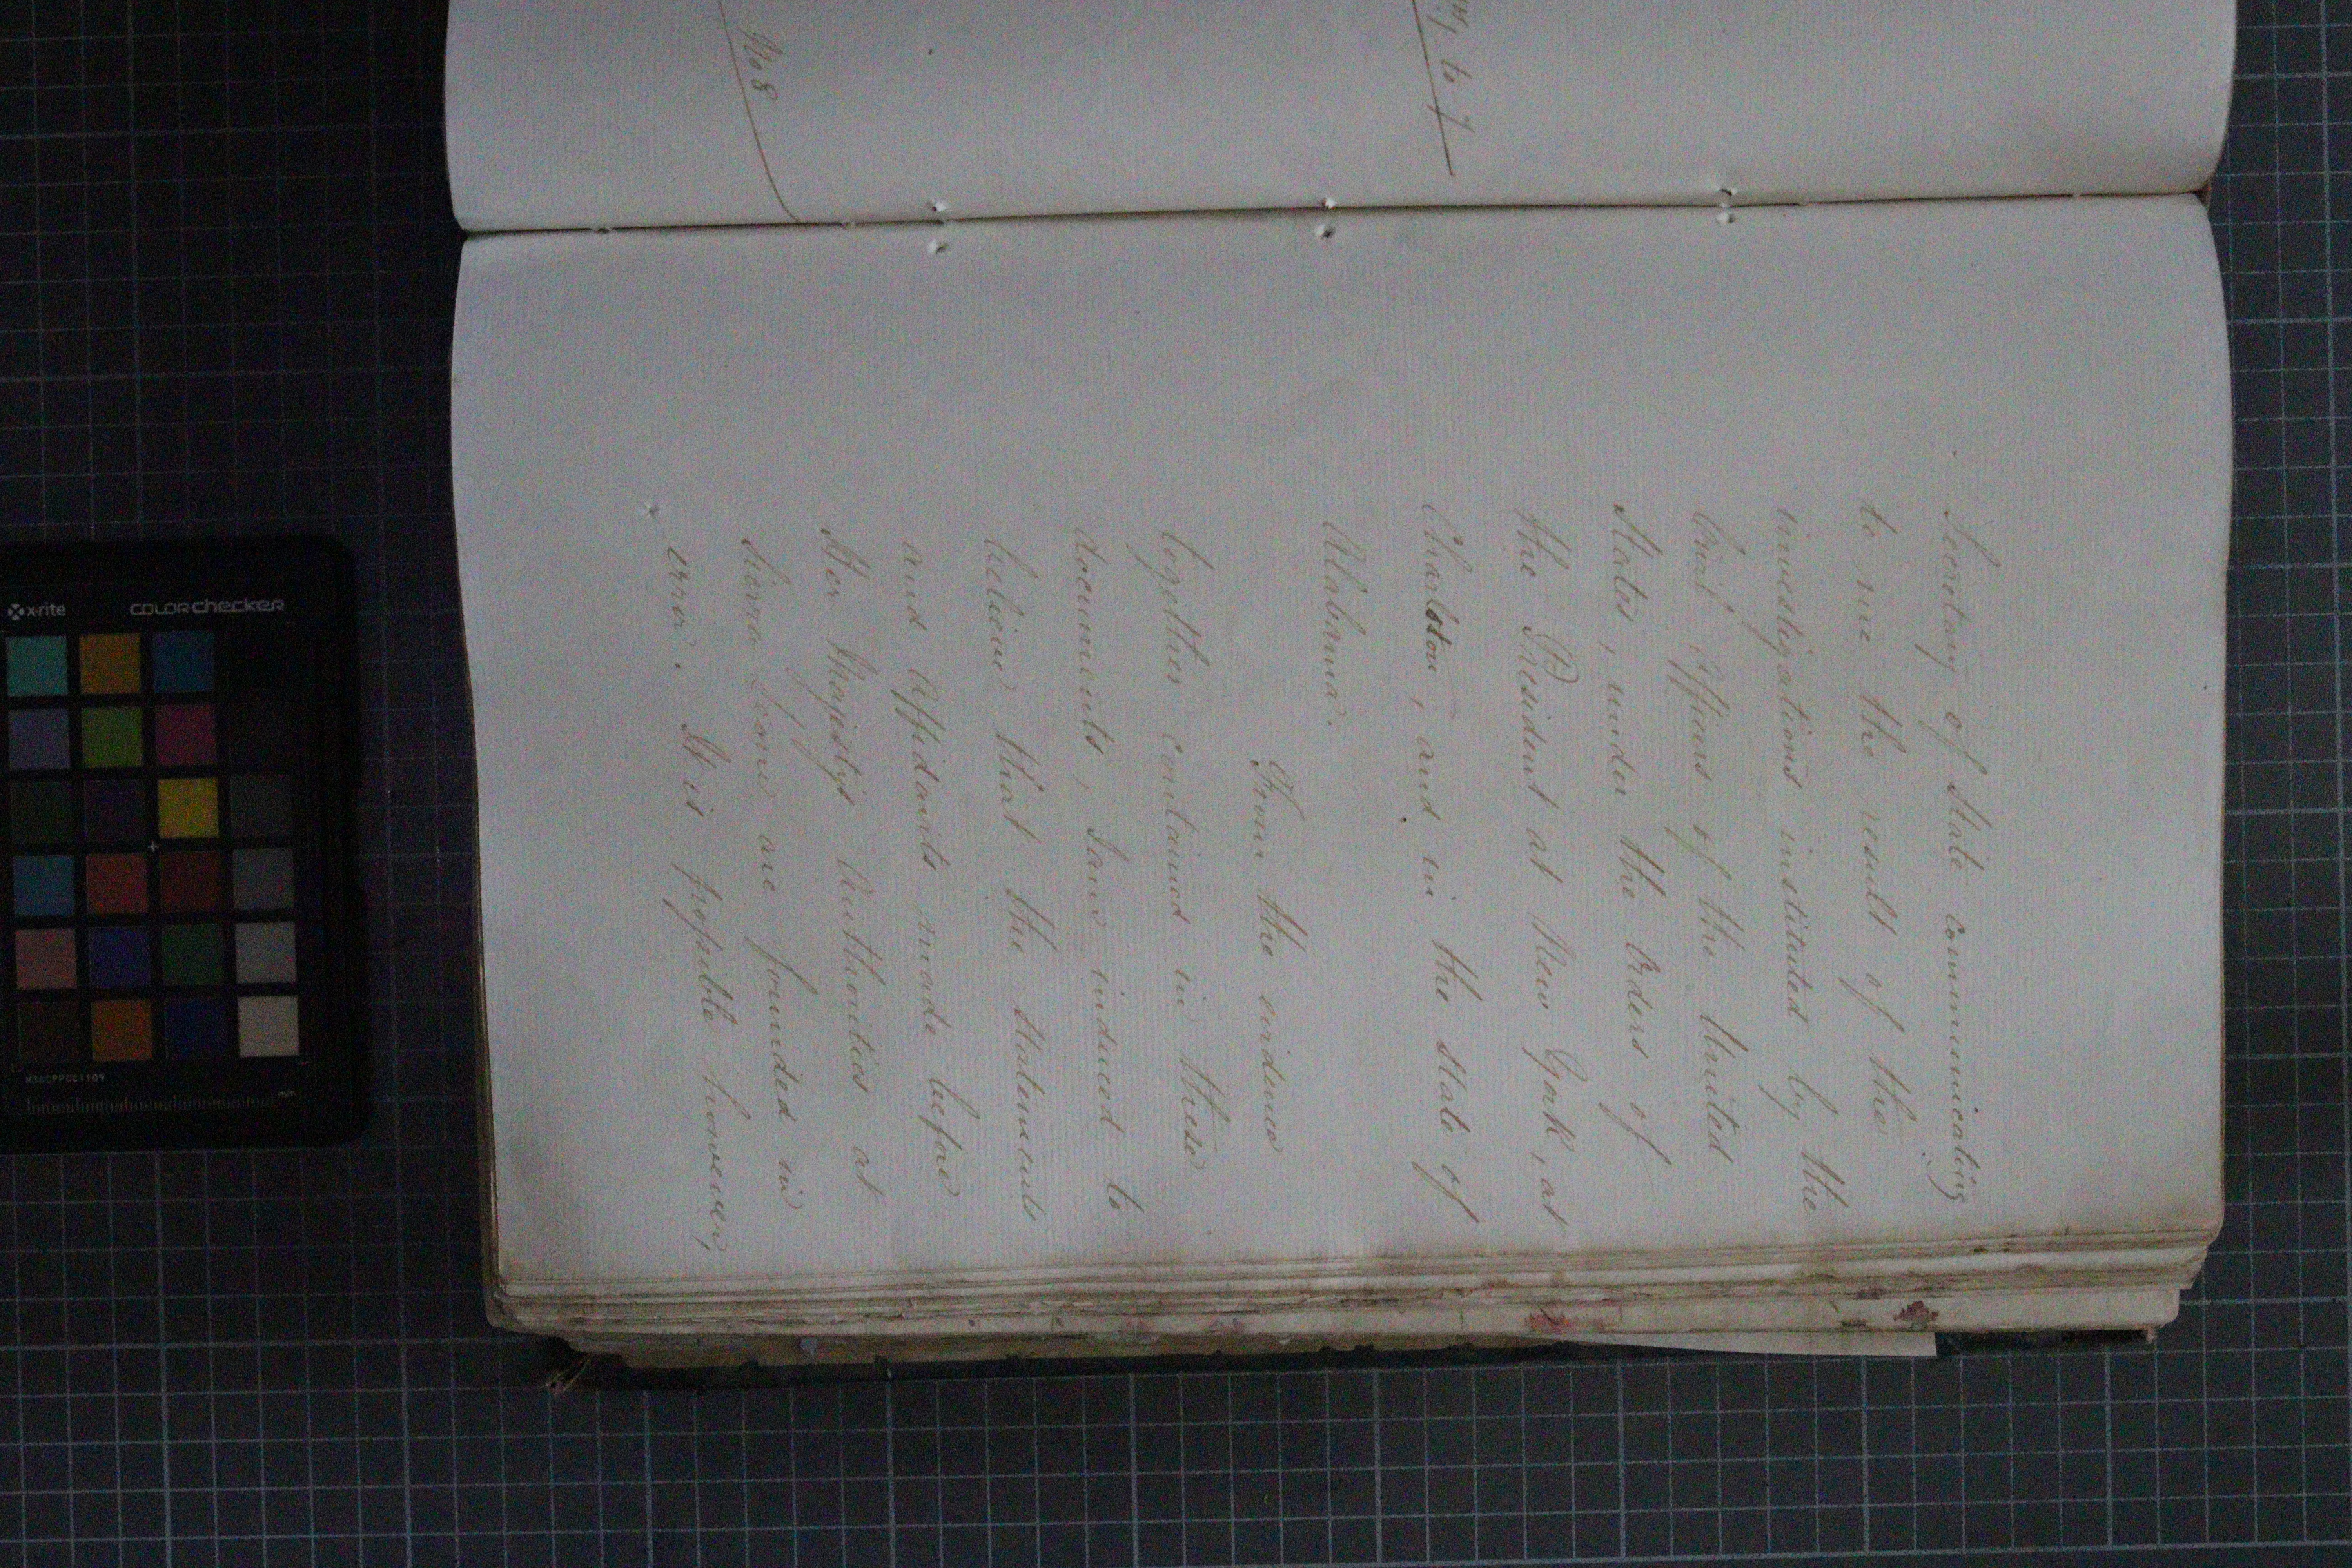 No 8
to 7
Secretary of State communicating
to me the result of the
investigations instituted by the
Civil Officers of the United
States, under the Orders of
the President at New York, at
Charlston, and in the State of
Alabama.
From the evidence
together contained in these
documents, I am induced to
believe that the Statements
and Affidavits made before
Her Majesty's Authorities at
Sierra Leone are founded in
error. It is possible however,
x-rite
colorchecker
mm